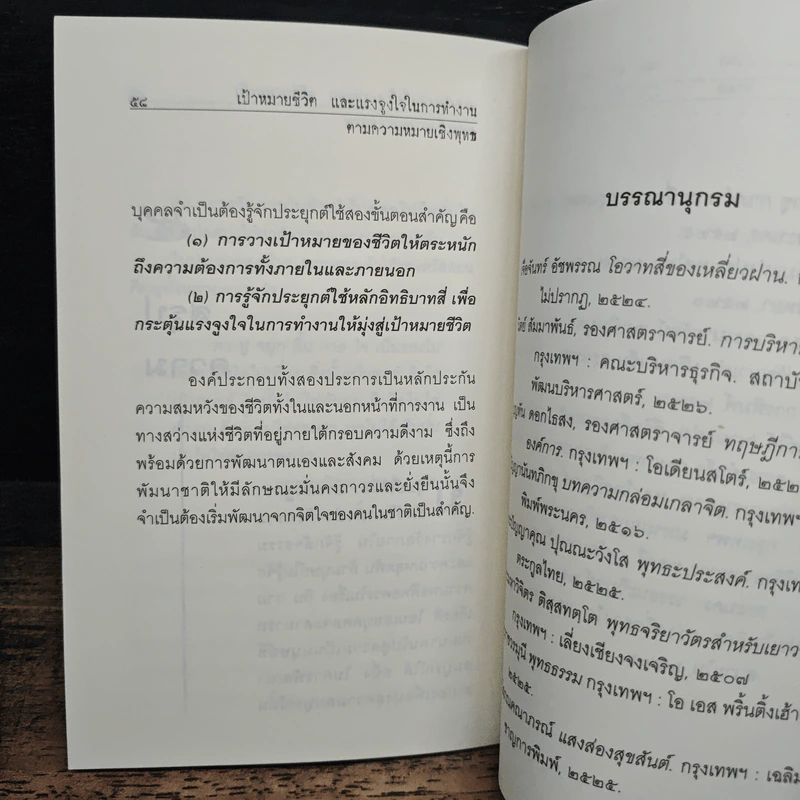 ๕๘ เป้าหมายชีวิต และแรงจูงใจในการทำงาน
ตามความหมายเชิงพุทธ
บุคคลจำเป็นต้องรู้จักประยุกต์ใช้สองขั้นตอนสำคัญ คือ
(๑) การวางเป้าหมายของชีวิตให้ตระหนัก
ถึงความต้องการทั้งภายในและภายนอก
(๒) การรู้จักประยุกต์ใช้หลักอิทธิบาทสี่ เพื่อ
กระตุ้นแรงจูงใจในการทำงานให้มุ่งสู่เป้าหมายชีวิต
องค์ประกอบทั้งสองประการเป็นหลักประกัน
ความสมหวังของชีวิตทั้งในและนอกหน้าที่การงาน เป็น
ทางสว่างแห่งชีวิตที่อยู่ภายใต้กรอบความดีงาม ซึ่งถึง
พร้อมด้วยการพัฒนาตนเองและสังคม ด้วยเหตุนี้การ
พัฒนาชาติให้มีลักษณะมั่นคงถาวรและยั่งยืนนั้นจึง
จำเป็นต้องเริ่มพัฒนาจากจิตใจของคนในชาติเป็นสำคัญ.
บรรณานุกรม
อัชพรรณ โอวาทสี่ของเหลี่ยวฝาน.
ไม่ปรากฏ, ๒๕๒๔.
สัมมาพันธ์, รองศาสตราจารย์. การบริหาร
กรุงเทพฯ : คณะบริหารธุรกิจ. สถาบัน
พัฒนบริหารศาสตร์, ๒๕๒๖.
ดอกไธสง, รองศาสตราจารย์ ทฤษฎีการ
องค์การ. กรุงเทพฯ : โอเดียนสโตร์, ๒๕๒
บทความกล่อมเกลาจิต. กรุงเทพฯ
พิมพ์พระนคร, ๒๕๑๖.
ปุณณะวังโส พุทธะประสงค์. กรุงเทพ
ตระกูลไทย, ๒๕๒๕.
ติสฺสทตฺโต พุทธจริยาวัตรสำหรับเยาว
กรุงเทพฯ : เลี่ยงเชียงจงเจริญ, ๒๕๐๗
พุทธธรรม กรุงเทพฯ : โอ เอส พริ้นติ้งเฮ้า
๒๕๒๕.
แสงส่องสุขสันต์. กรุงเทพฯ : เฉลิม
ชาญการพิมพ์, ๒๕๒๕.